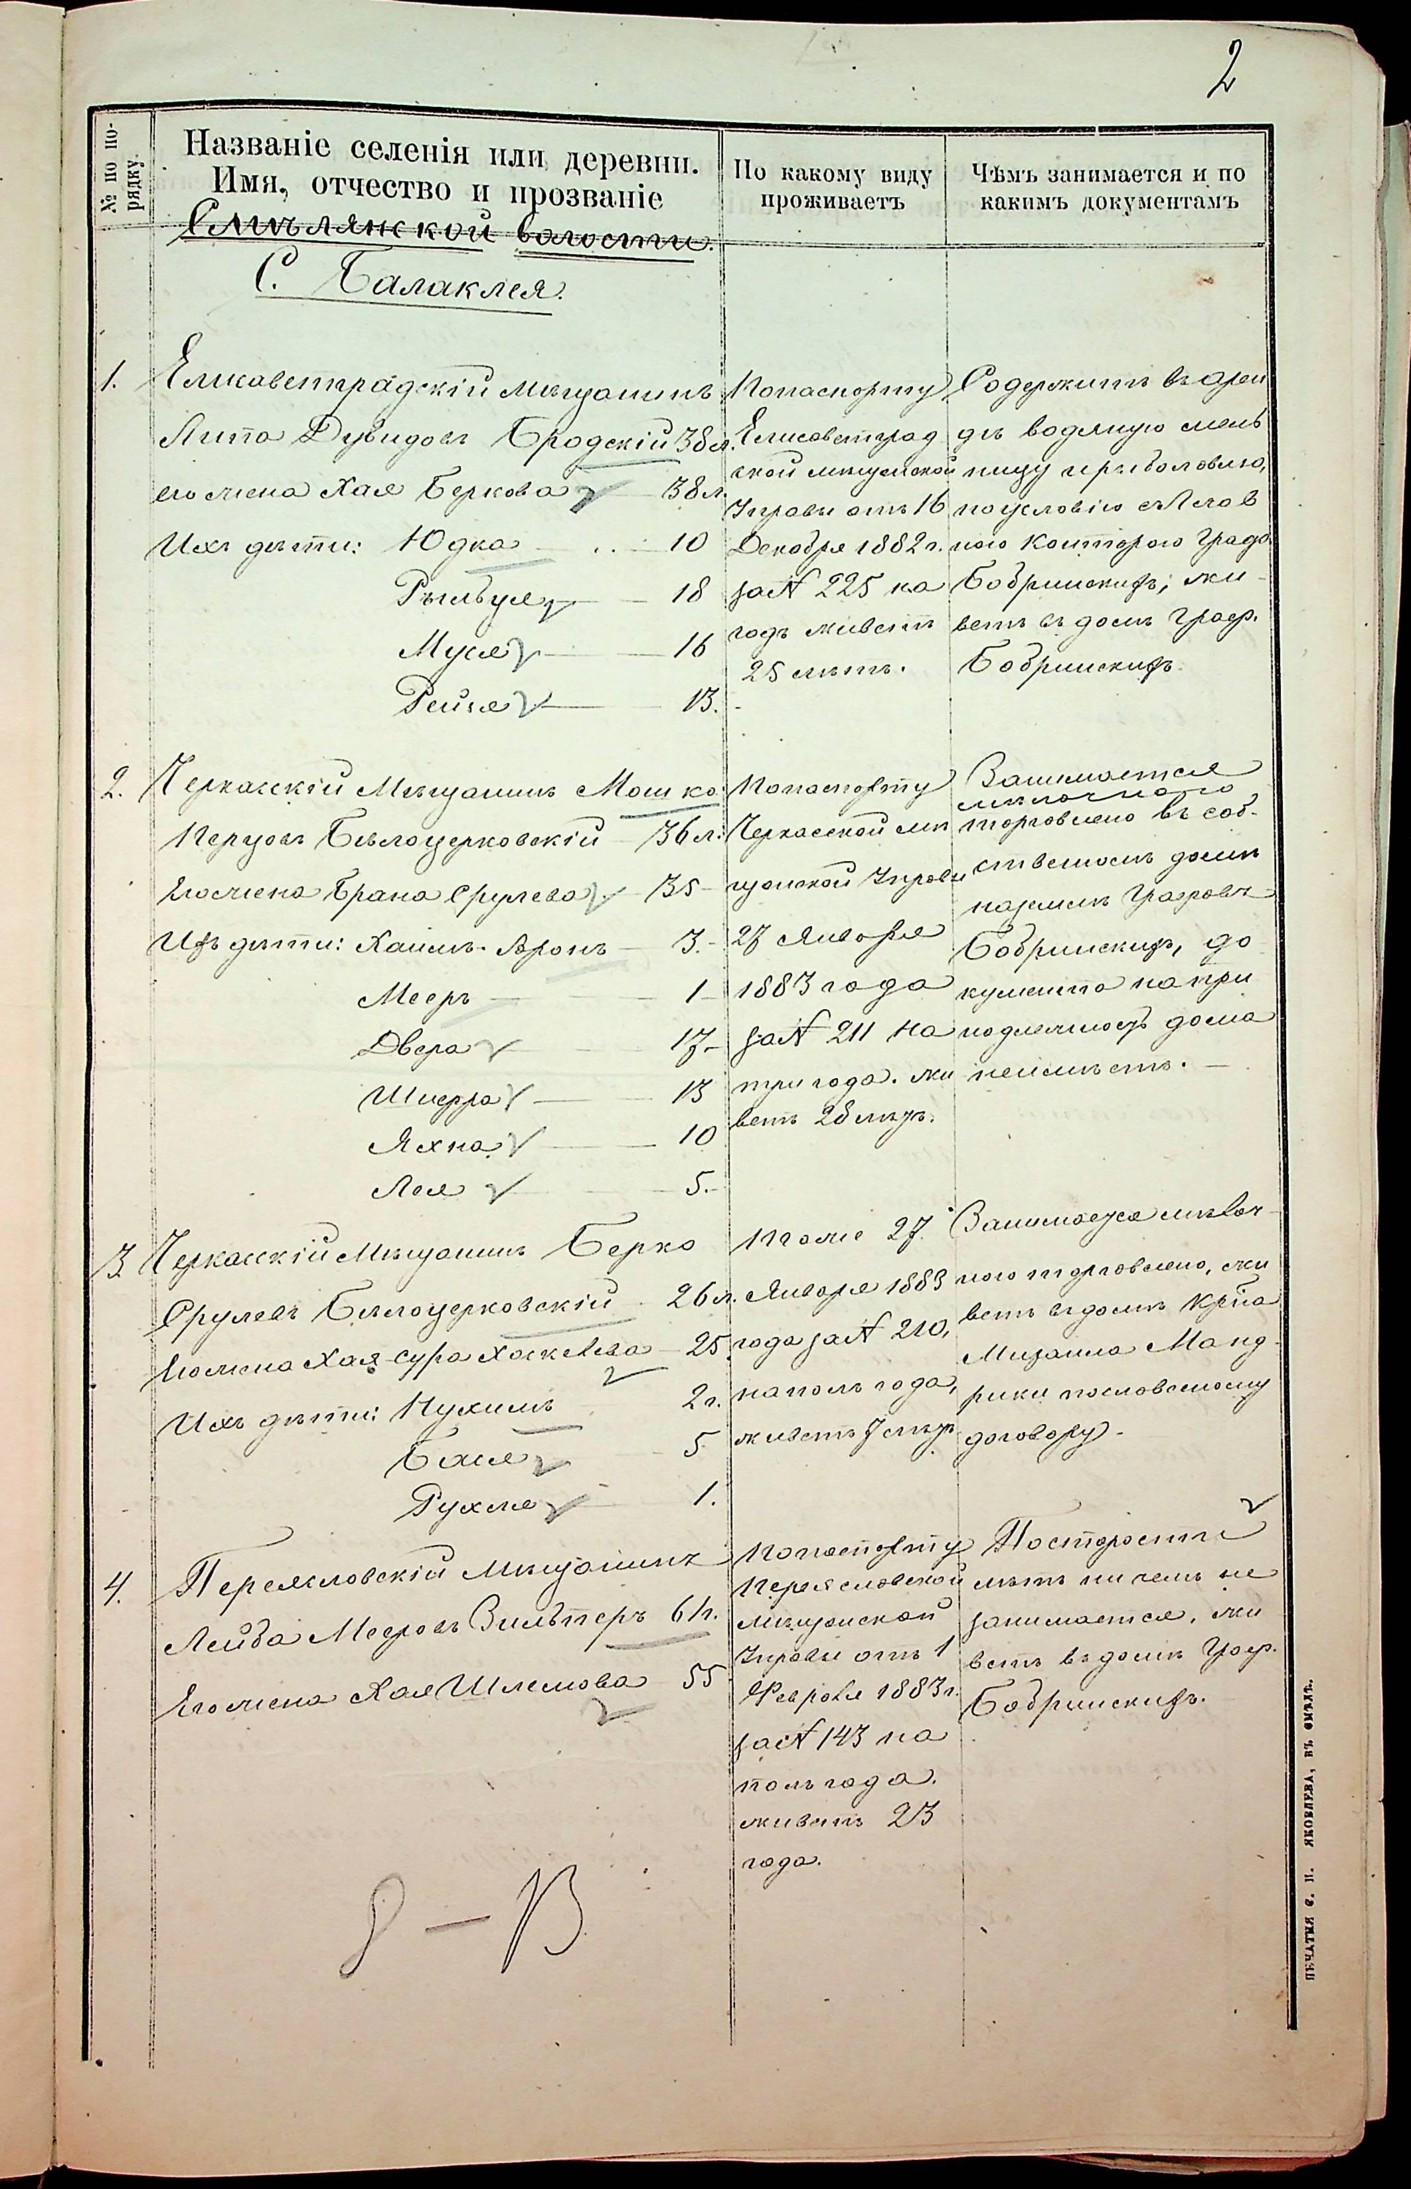 2
№ по по-
рядку.
Названіе селенія или деревни.
Имя, отчество и прозваніе
По какому виду
проживаетъ
Чѣмъ занимается и по
какимъ документамъ
Смѣлянской волости.
С. Балаклея.
1.
Елисаветградскій мѣщанинъ
Липа Дувидовъ Бродскій 38 л.
его жена Хая Беркова 38 л.
Ихъ дѣти: Юдка 10
18
Муся 16
Рейзя 13.
По паспорту
Елисаветград
ской мѣщанской
Управы отъ 16
Декабря 1882 г.
за № 225 на
годъ живетъ
25 лѣтъ.
Содержитъ въ арен
дѣ водяную мель
ницу и рыболовлю,
по условію съ Глав
ною Конторою Графа
Бобринскихъ, жи
ветъ въ домѣ Граф.
Бобринскихъ.
2.
Черкасскій Мѣщанинъ Мошко
Перцовъ Бѣлоцерковскій 36 л.
Его жена Брана Срулева 35
Ихъ дѣти: Хаимъ-Аронъ 3.
Мееръ 1
Двера 17
Шифра 13
Яхна 10
Лея 5.
По паспорту
Черкасской мѣ
щанской Управы
27 Января
1883 года
за № 211 на
три года. жи
ветъ 28 лѣтъ.
Занимается
мѣлочною
торговлею въ соб-
ственномъ домѣ
на землѣ Графовъ
Бобринскихъ, до
кумента на при
надлежность дома
неимѣетъ.
3.
Черкасскій Мѣщанинъ Берко
Срулевъ Бѣлоцерковскій 26 л.
Его жена Хая-Сура Хаскелева 25
Ихъ дѣти: Нухимъ 2 г.
Бася 5
Рухля 1.
Тоже 27
Января 1883
года за № 210,
на полъ года,
живетъ 7 лѣтъ
Занимается мѣлоч-
ною торговлею, жи
ветъ въ домѣ кр-на
Михаила Манд-
рики по словесному
договору.
4.
Переяславскій Мѣщанинъ
Лейба Мееровъ Вильтеръ 61 г.
Его жена Хая Шлемова 55
По паспорту
Переяславской
мѣщанской
Управы отъ 1
Февраля 1883 г.
за № 143 на
полъ года.
живетъ 23
года.
По старости
лѣтъ ни чемъ не
занимается, жи
ветъ въ домѣ Граф.
Бобринскихъ.
8 — 13
ПЕЧАТНЯ С. Н. ЯКОВЛЕВА, ВЪ СМѢЛѢ.